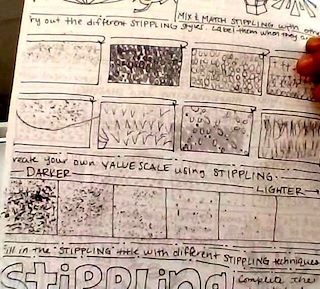 MIX & MATCH STIPPLING with othe
ry out the different STIPPLING styles. Label them when they a
reate your own VALUE SCALE using STIPPLING.
DARKER
LIGHTER
ill in the "STIPPLING" title with different STIPPLING techniques
Stippling
complete the